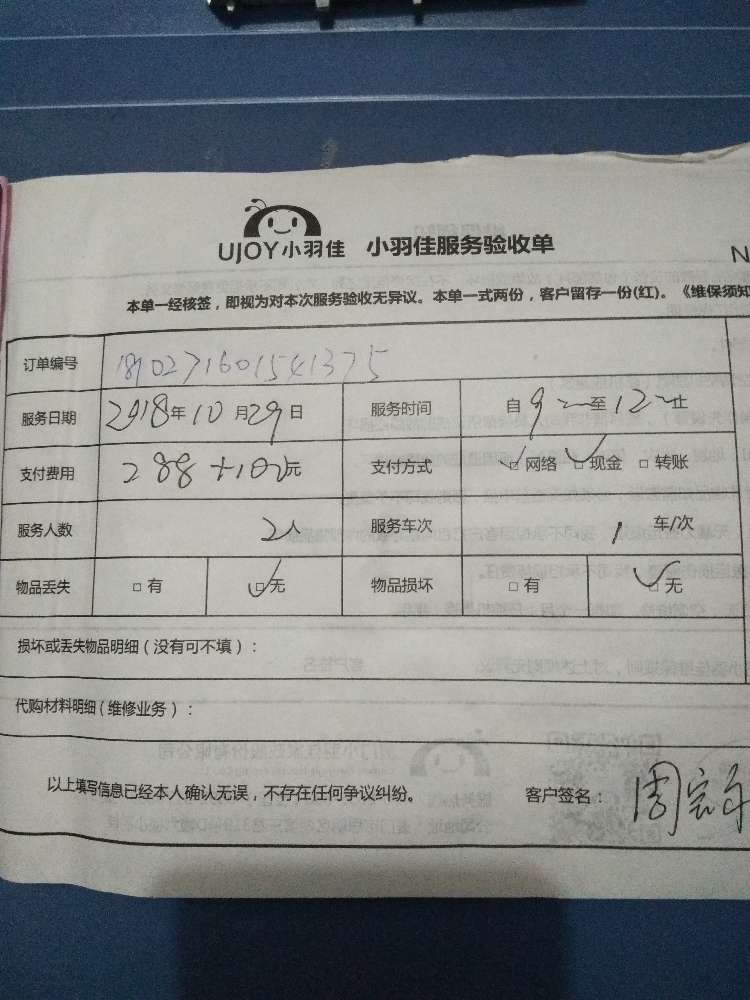 UJOY小羽佳 小羽佳服务验收单
N
本单一经核签，即视为对本次服务验收无异议。本单一式两份，客户留存一份(红)。《维保须知
订单编号 1810271601541375
服务日期 2018年10月29日 服务时间 自9 至12 止
支付费用 288+100元 支付方式 ☑网络 ☑现金 □转账
服务人数 2人 服务车次 1 车/次
物品丢失 □有 ☑无 物品损坏 □有 ☑无
损坏或丢失物品明细（没有可不填）：
代购材料明细（维修业务）：
以上填写信息已经本人确认无误，不存在任何争议纠纷。 客户签名：周